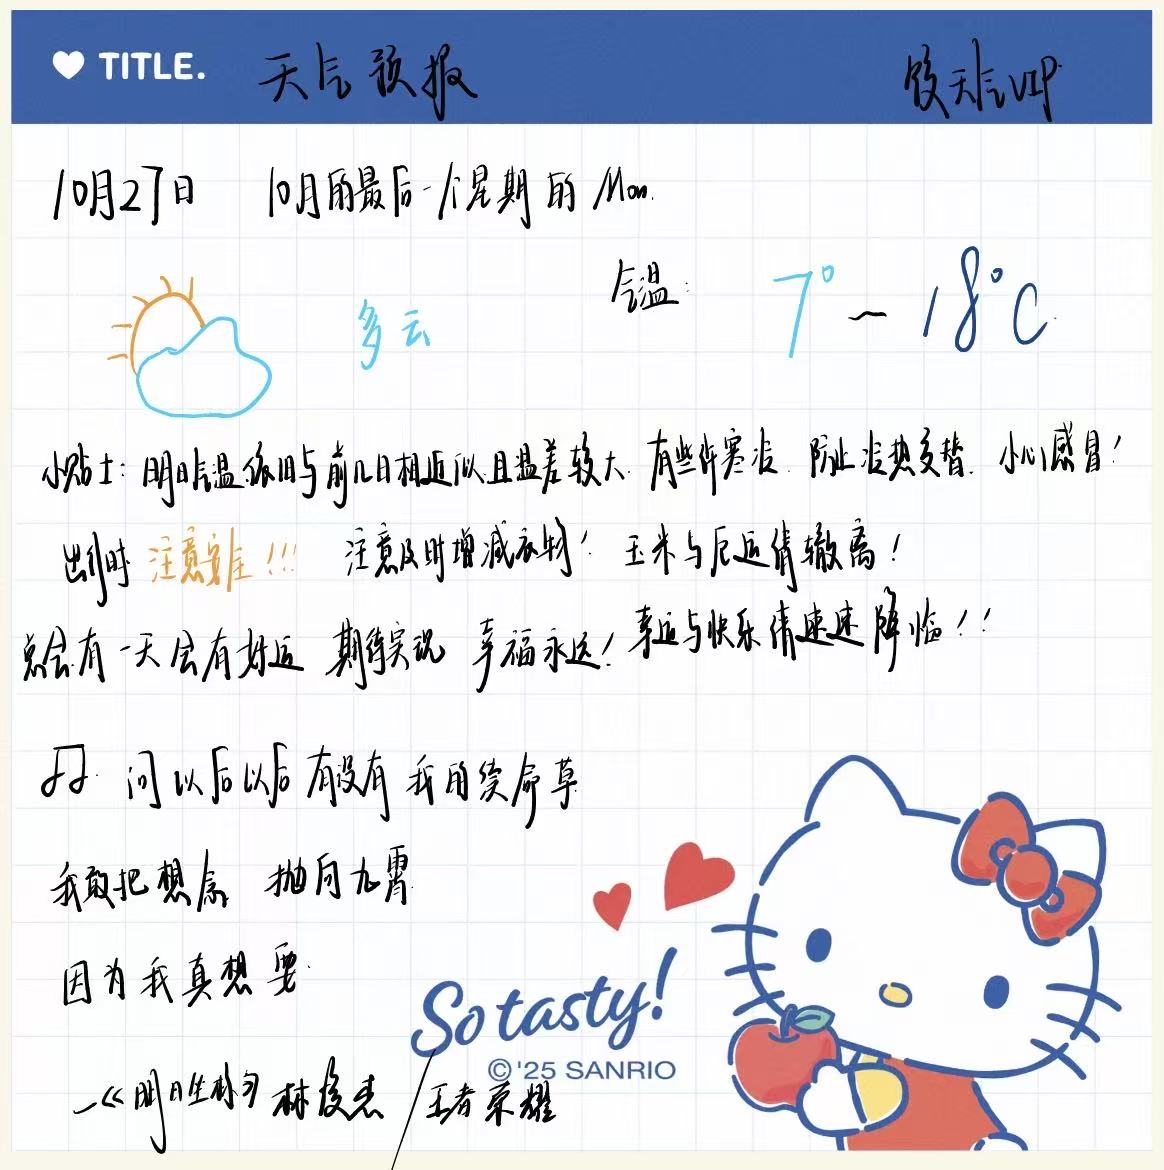 TITLE. 天气预报 饺天气VIP
10月27日 10月的最后一个星期的 Mon.
多云 气温: 7°~18°C
小贴士: 明日气温依旧与前几日相近似且温差较大. 有些许寒冷. 防止冷热交替. 小心感冒!
出行时 注意安全!!! 注意及时增减衣物! 玉米与厄运请撤离!
总会有一天会有好运 期待实现 幸福永远! 幸运与快乐请速速降临!!
♫. 问以后以后有没有我的续命草
我敢把想念 抛向九霄
因为我真想要.
So tasty!
©'25 SANRIO
—《明日坐标》林俊杰/王者荣耀